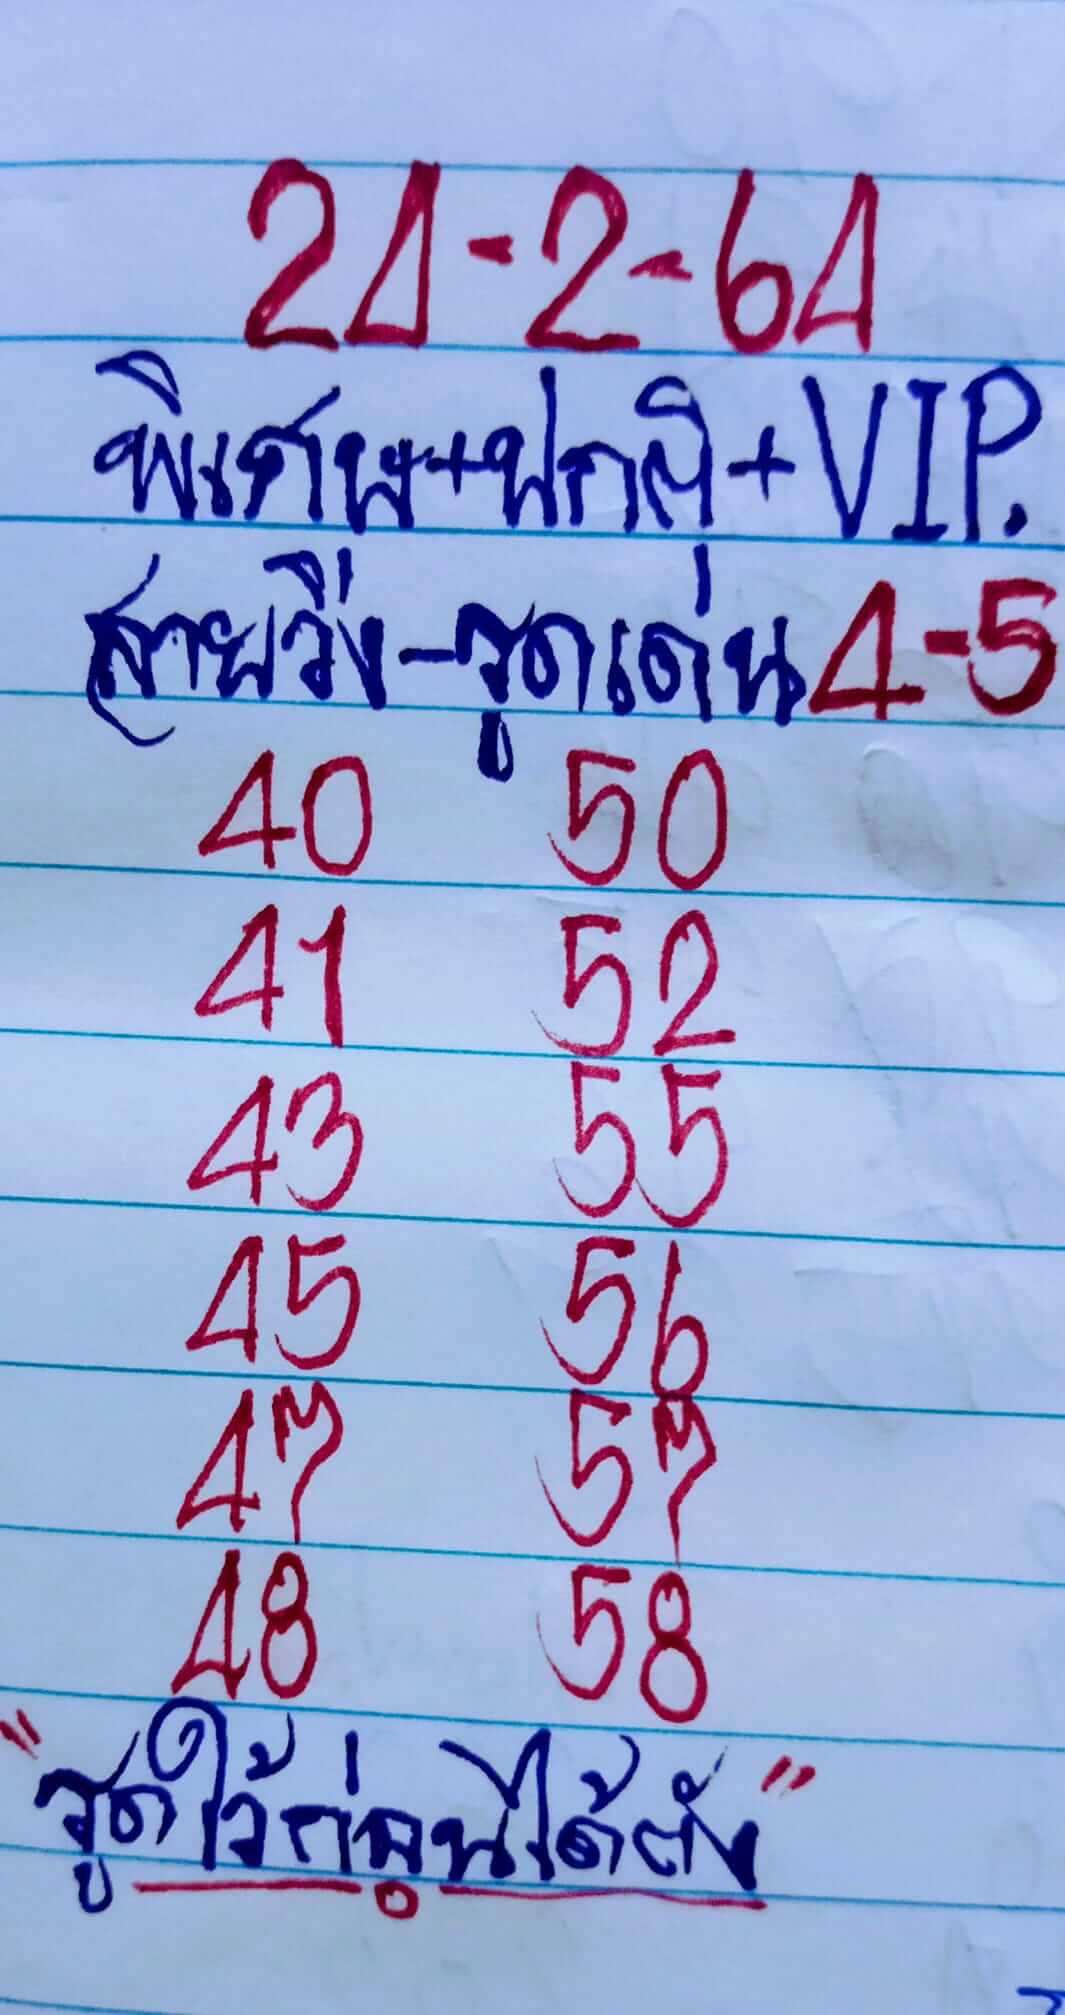 24-2-64
พิเศษ+ปกติ+VIP.
สายวิ่ง-รูดเด่น 4-5
40 50
41 52
43 55
45 56
47 57
48 58
"รูดไว้กลุ่มนี้ได้ตัง"